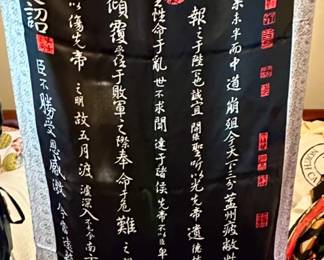 未半而中道崩殂今天下三分益州疲敝此
報之于陛下也誠宜開張聖聽以光先帝遺德
全性命于亂世不求聞達于諸侯先帝不以臣卑
傾覆受任于敗軍之際奉命于危難之
以傷先帝之明故五月渡瀘深入不毛今南
臣不勝受恩感激今當遠
詔